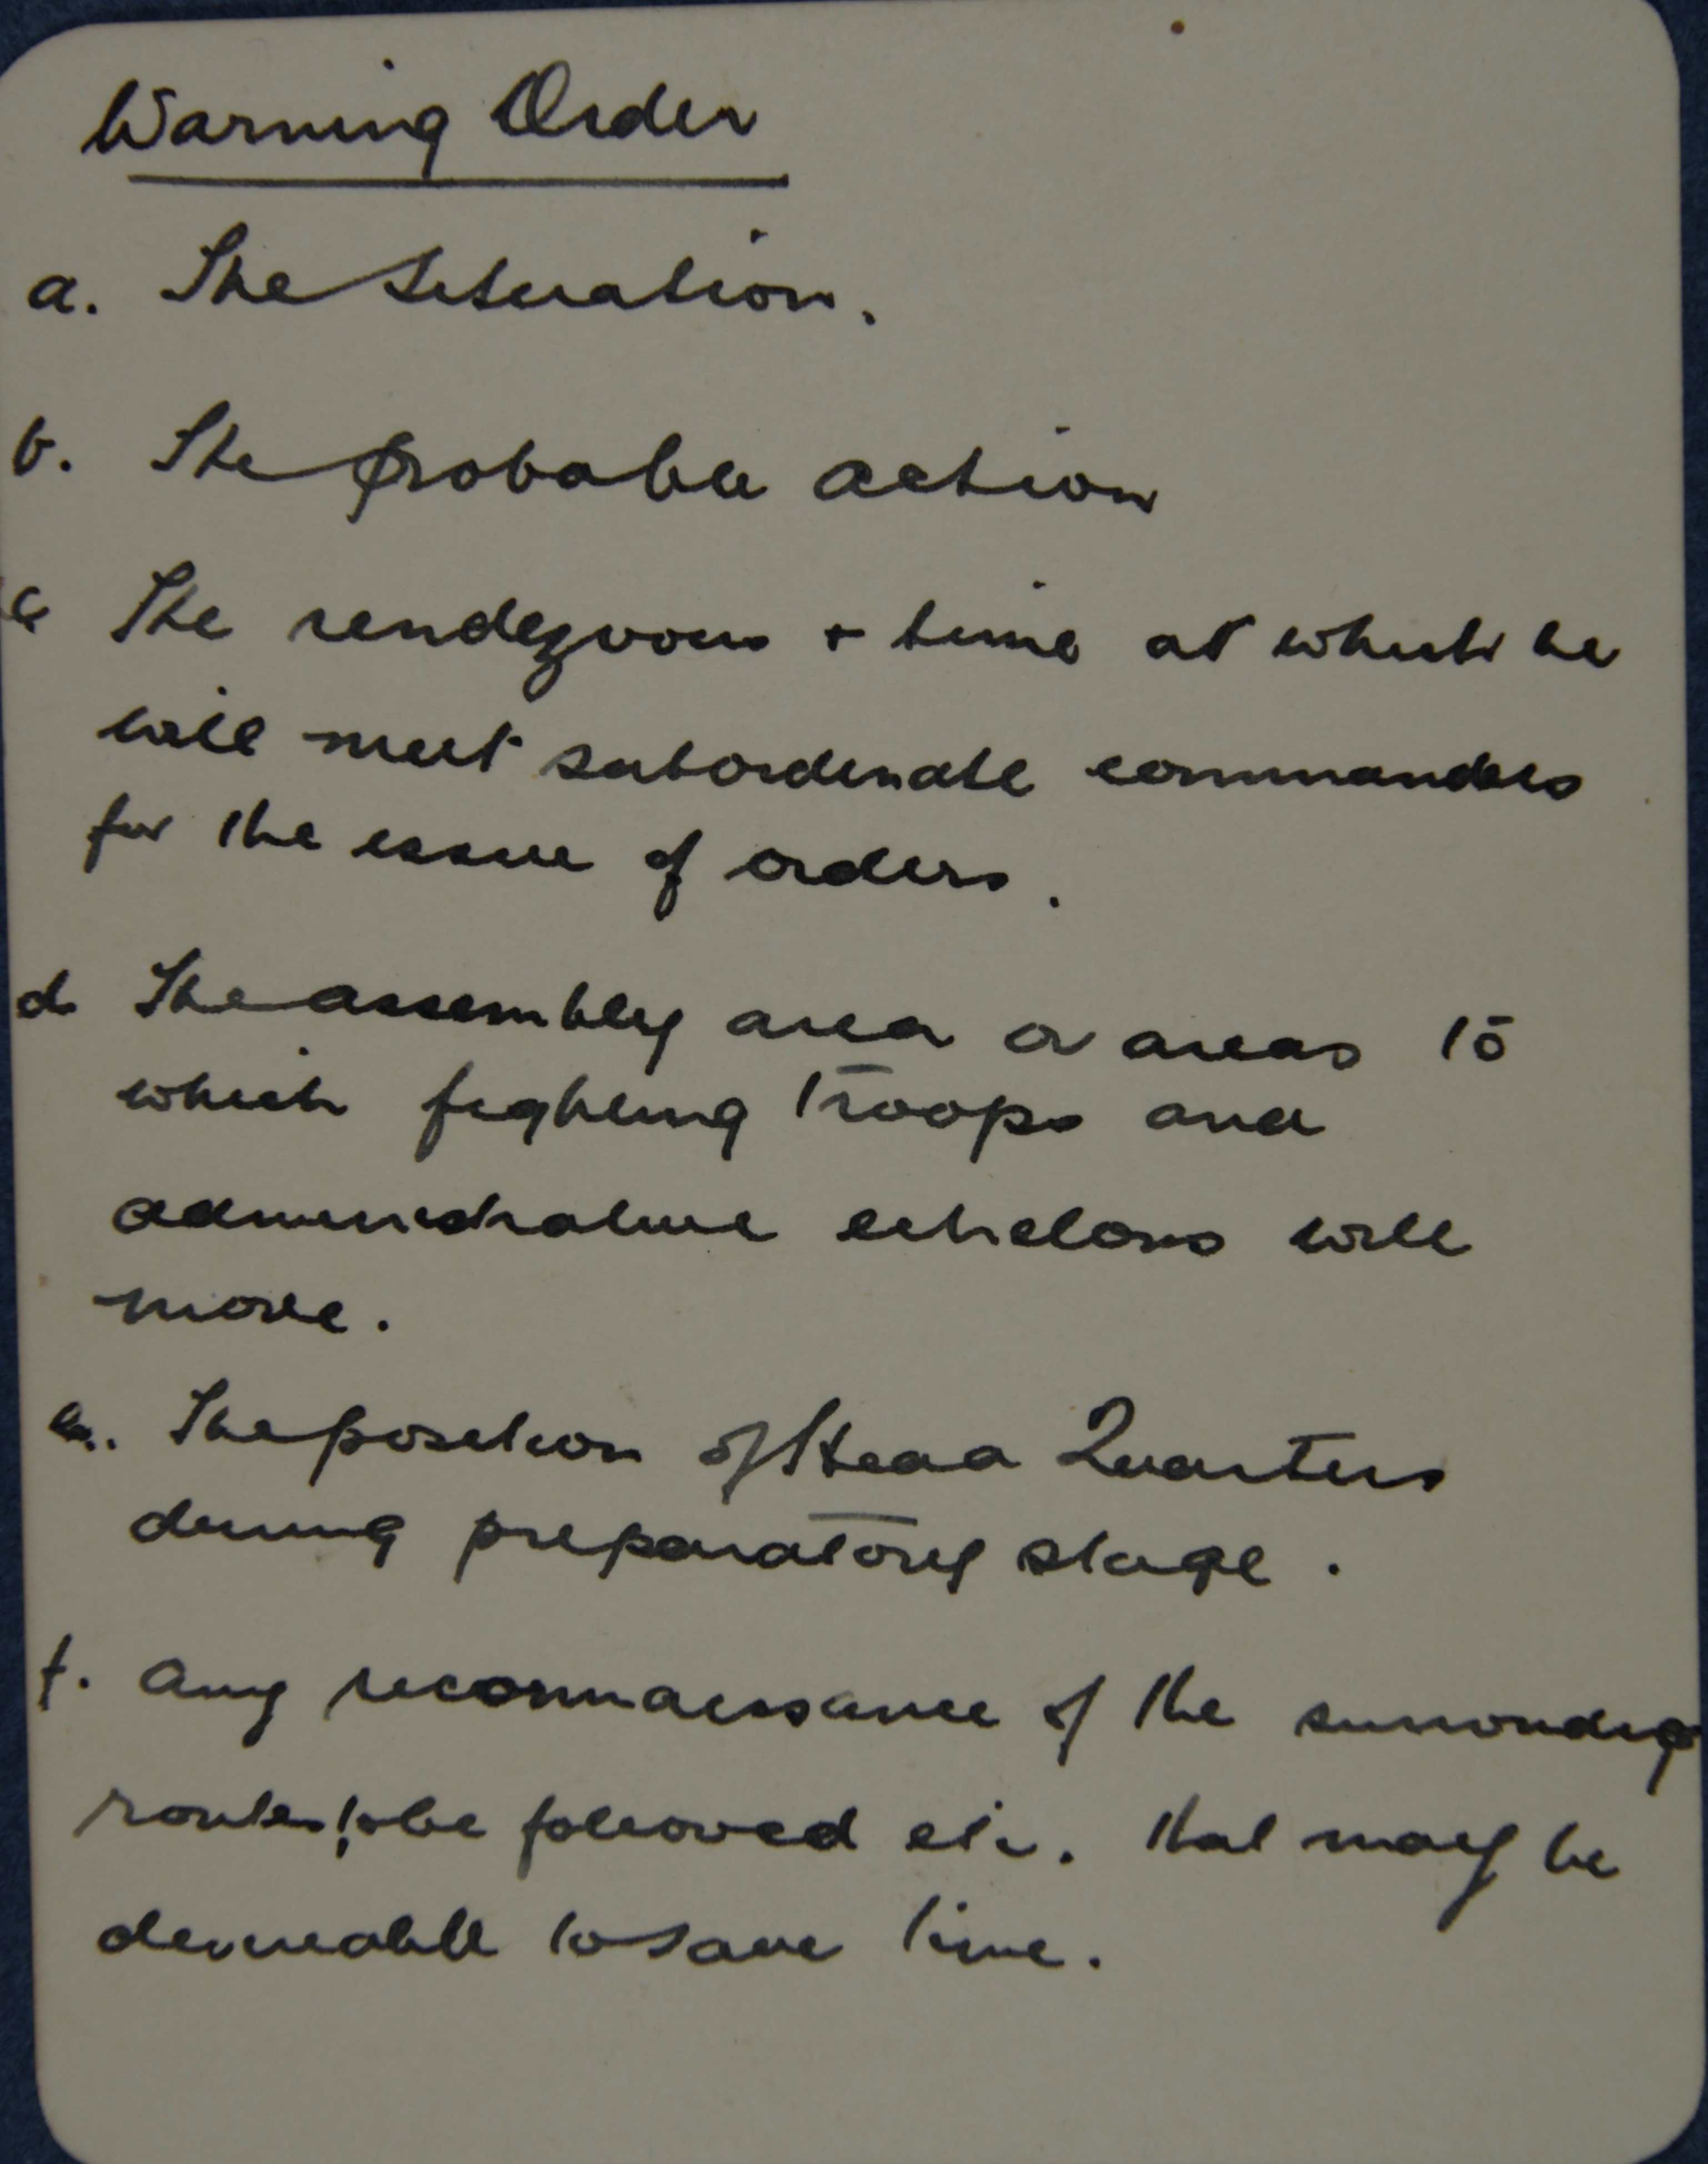 Warning Order
a. The situation.
b. The probable action
c The rendezvous + time at which he
will meet subordinate commanders
for the issue of orders.
d The assembly area or areas to
which fighting troops and
administrative echelons will
move.
e. The position of Head Quarters
during preparatory stage.
f. Any reconnaissance of the
routes to be followed etc. that may be
desireable to save time.